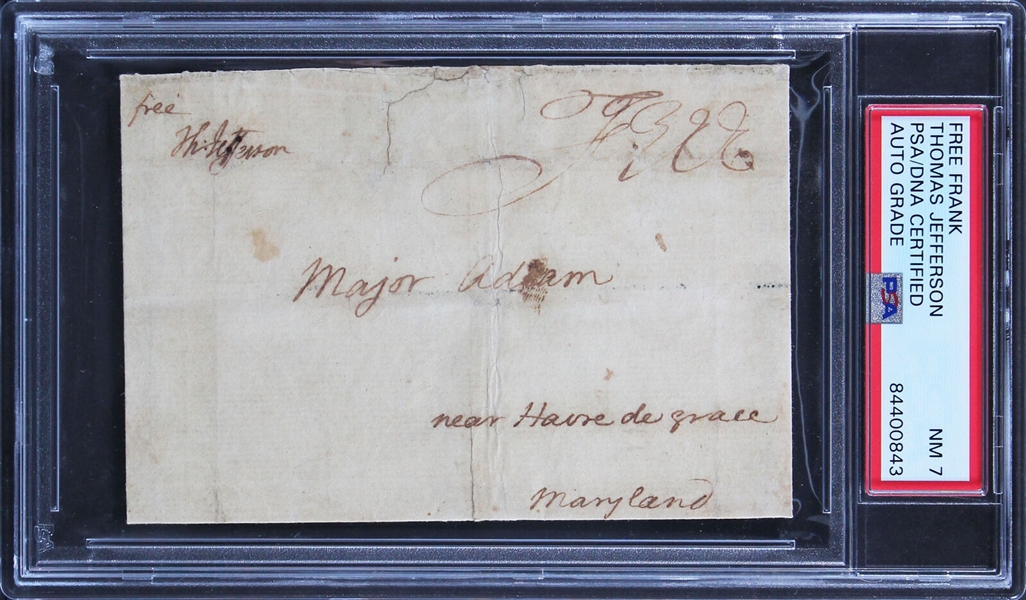 free
Th: Jefferson
Free
Major Adlam
near Havre de grace
Maryland
FREE FRANK
THOMAS JEFFERSON
PSA/DNA CERTIFIED
AUTO GRADE
NM 7
84400843
PSA